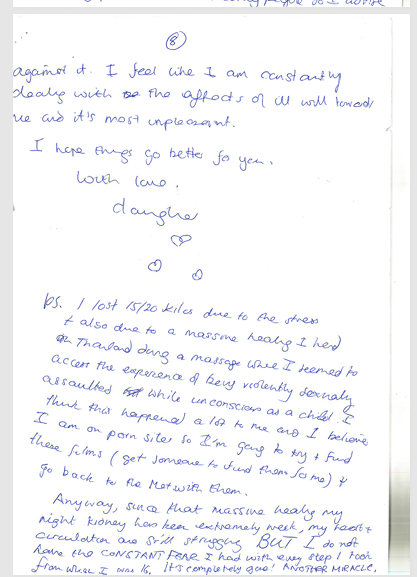 people so I advise
8
against it. I feel like I am constantly
dealing with the affects of ill will towards
me and it's most unpleasant.
I hope things go better for you.
With love.
daughter
Ps. I lost 15/20 kilos due to the stress
+ also due to a massive healing I had
in Thailand during a massage where I seemed to
access the experience of being violently sexually
assaulted while unconscious as a child. I
think that happened a lot to me and I believe
I am on porn sites so I'm going to try + find
these films (get someone to find them for me) +
go back to the Met with them.
Anyway, since that massive healing my
right kidney has been extremely weak, my heart +
circulation are still struggling BUT I do not
have the CONSTANT FEAR I had with every step I took
from when I was 16. It's completely gone! ANOTHER MIRACLE.